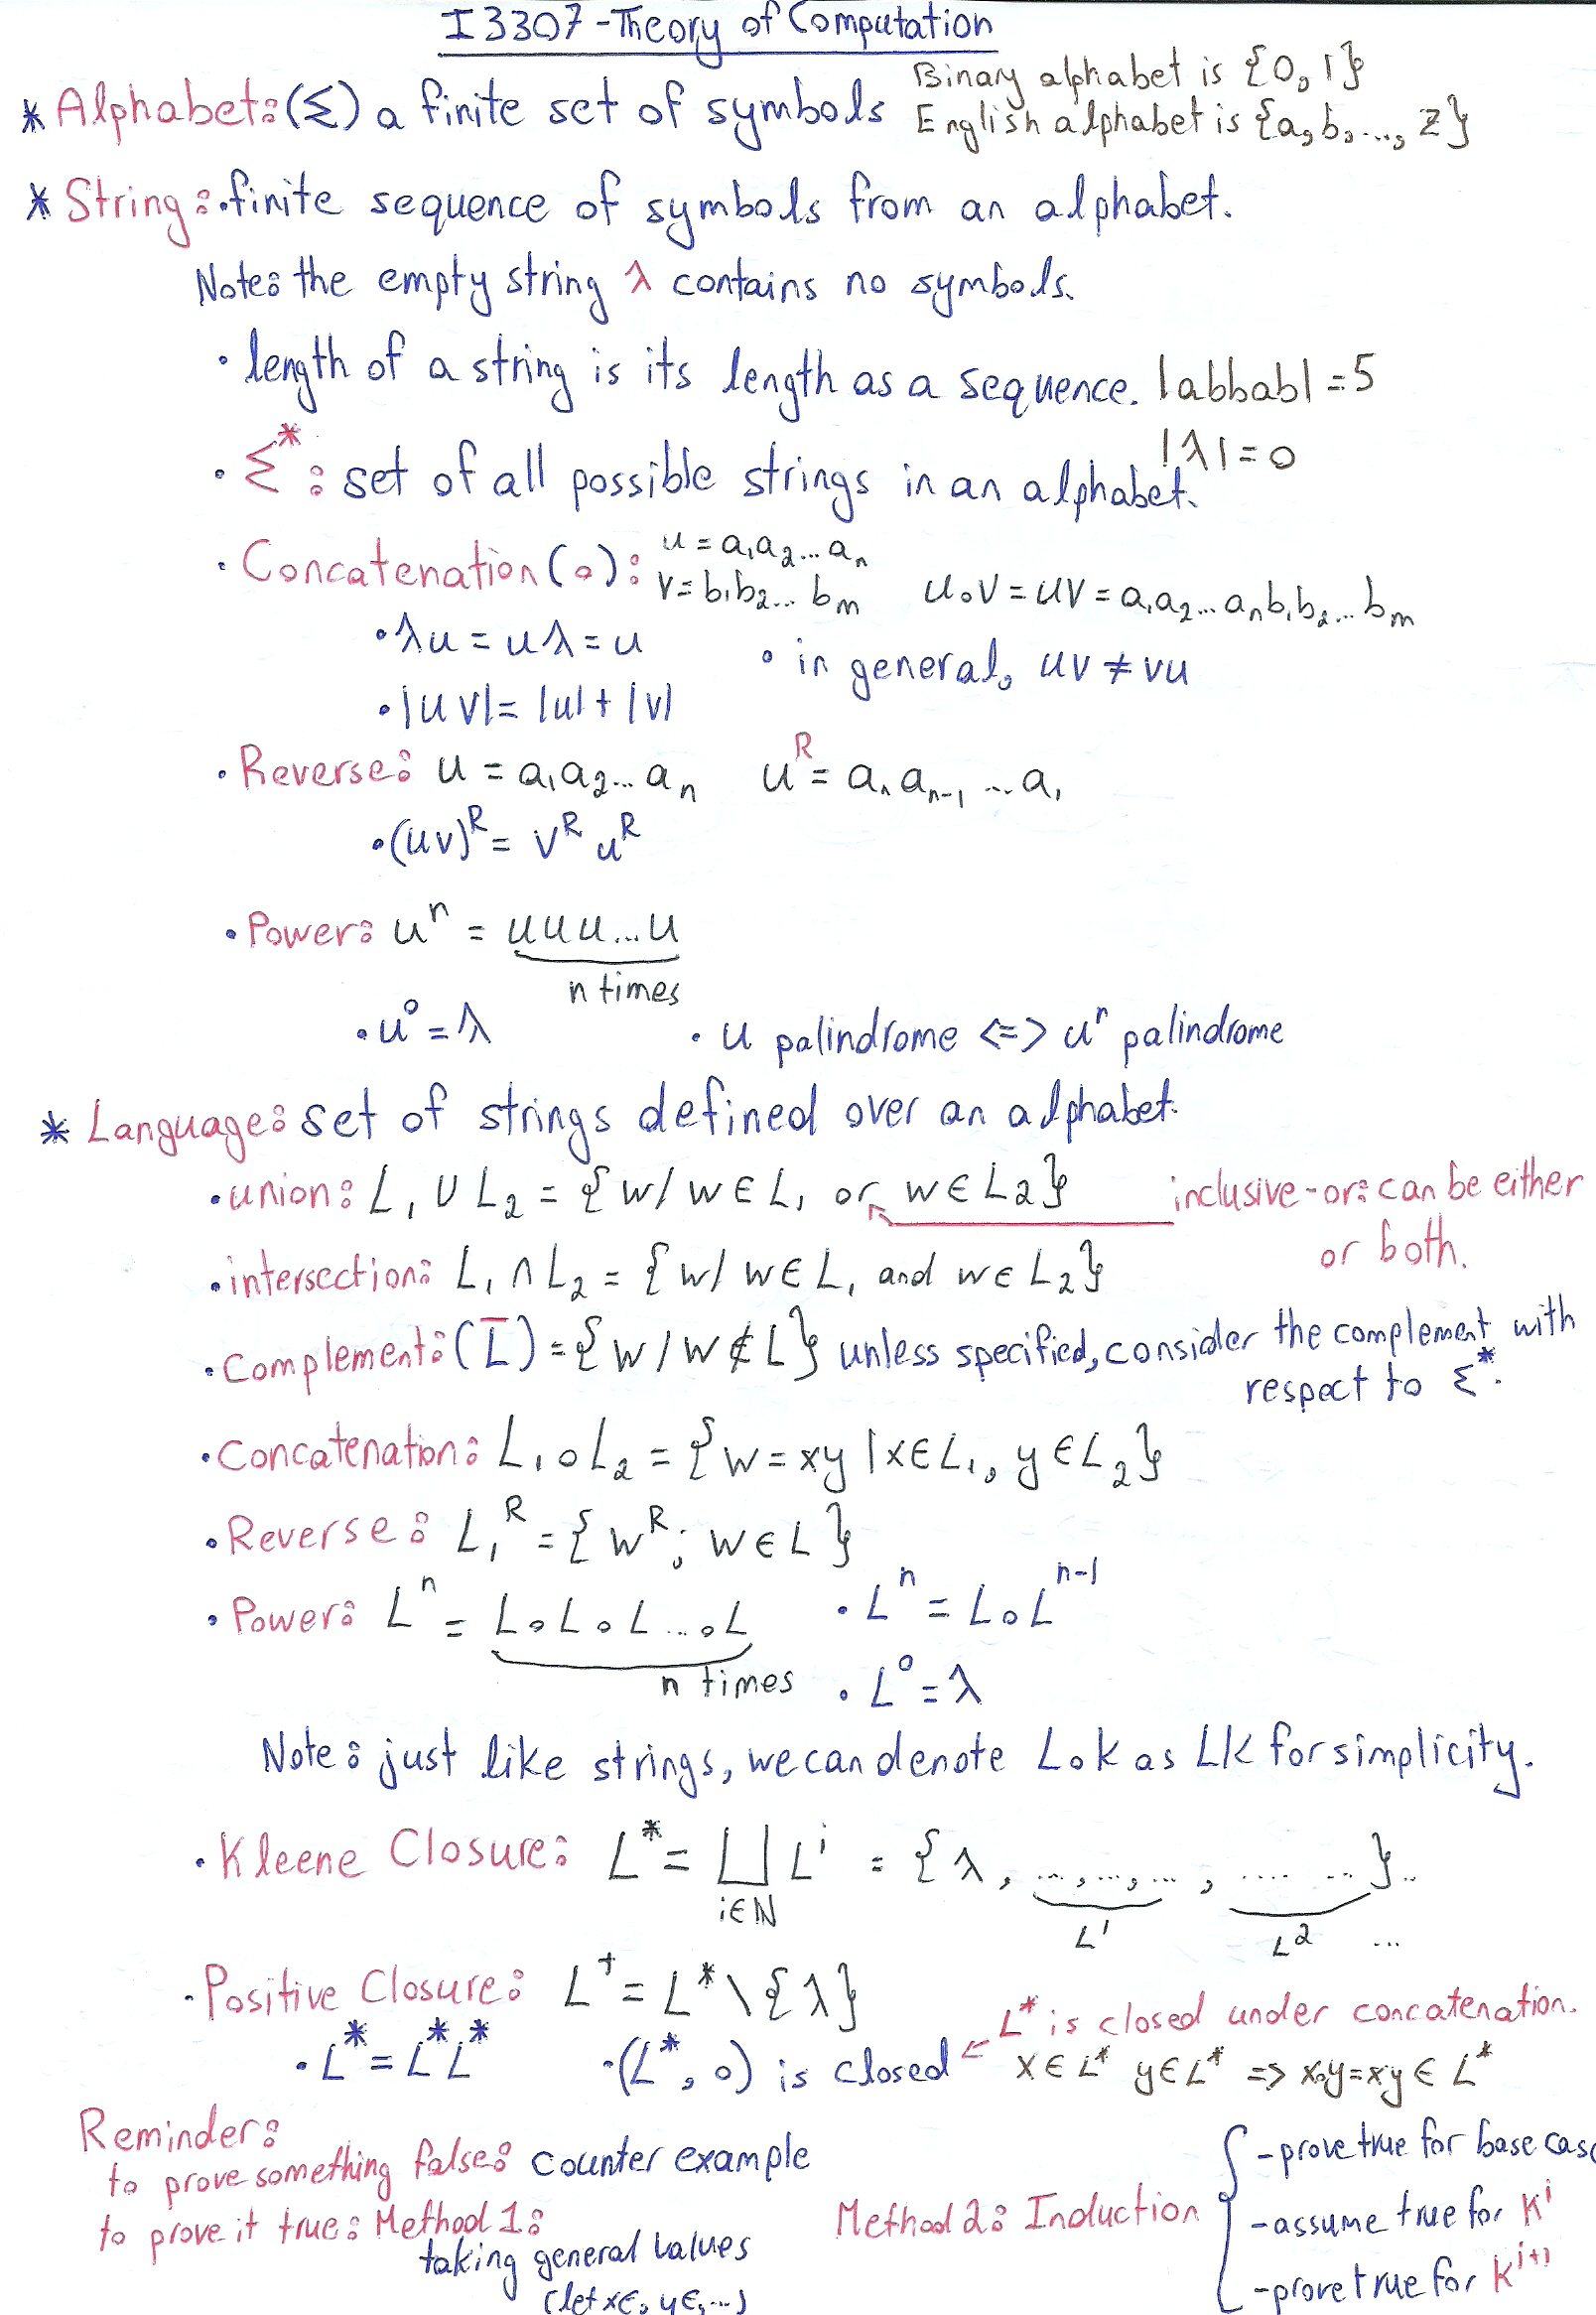 I3307-Theory of Computation
* Alphabet: (Σ) a finite set of symbols
Binary alphabet is {0, 1}
English alphabet is {a, b, ..., z}
* String: finite sequence of symbols from an alphabet.
Note: the empty string λ contains no symbols.
• length of a string is its length as a sequence. |abbab| = 5
|λ| = 0
• Σ* : set of all possible strings in an alphabet.
• Concatenation (∘): u = a₁a₂...aₙ
v = b₁b₂...bₘ u∘v = uv = a₁a₂...aₙb₁b₂...bₘ
• λu = uλ = u • in general, uv ≠ vu
• |uv| = |u| + |v|
• Reverse: u = a₁a₂...aₙ uᴿ = aₙaₙ₋₁...a₁
• (uv)ᴿ = vᴿ uᴿ
• Power: uⁿ = uuu...u
n times
• u⁰ = λ • u palindrome <=> uⁿ palindrome
* Language: set of strings defined over an alphabet.
• union: L₁ ∪ L₂ = {w / w ∈ L₁ or w ∈ L₂} inclusive-or: can be either
or both.
• intersection: L₁ ∩ L₂ = {w / w ∈ L₁ and w ∈ L₂}
• Complement: (L̅) = {w / w ∉ L} unless specified, consider the complement with
respect to Σ*.
• Concatenation: L₁∘L₂ = {w = xy | x ∈ L₁, y ∈ L₂}
• Reverse: L₁ᴿ = {wᴿ; w ∈ L}
• Power: Lⁿ = L∘L∘L...∘L • Lⁿ = L∘Lⁿ⁻¹
n times • L⁰ = λ
Note: just like strings, we can denote L∘K as LK for simplicity.
• Kleene Closure: L* = ⋃ Lⁱ = {λ, ...,...,..., ..... ...}..
i∈ℕ L¹ L² ...
• Positive Closure: L⁺ = L* \ {λ}
L* is closed under concatenation.
• L* = L*L* • (L*, ∘) is closed ← x ∈ L* y ∈ L* => x∘y = xy ∈ L*
Reminder:
to prove something false: counter example
to prove it true: Method 1:
taking general values
(let x∈, y∈, ...)
Method 2: Induction
- prove true for base cas
- assume true for Kⁱ
- prove true for Kⁱ⁺¹